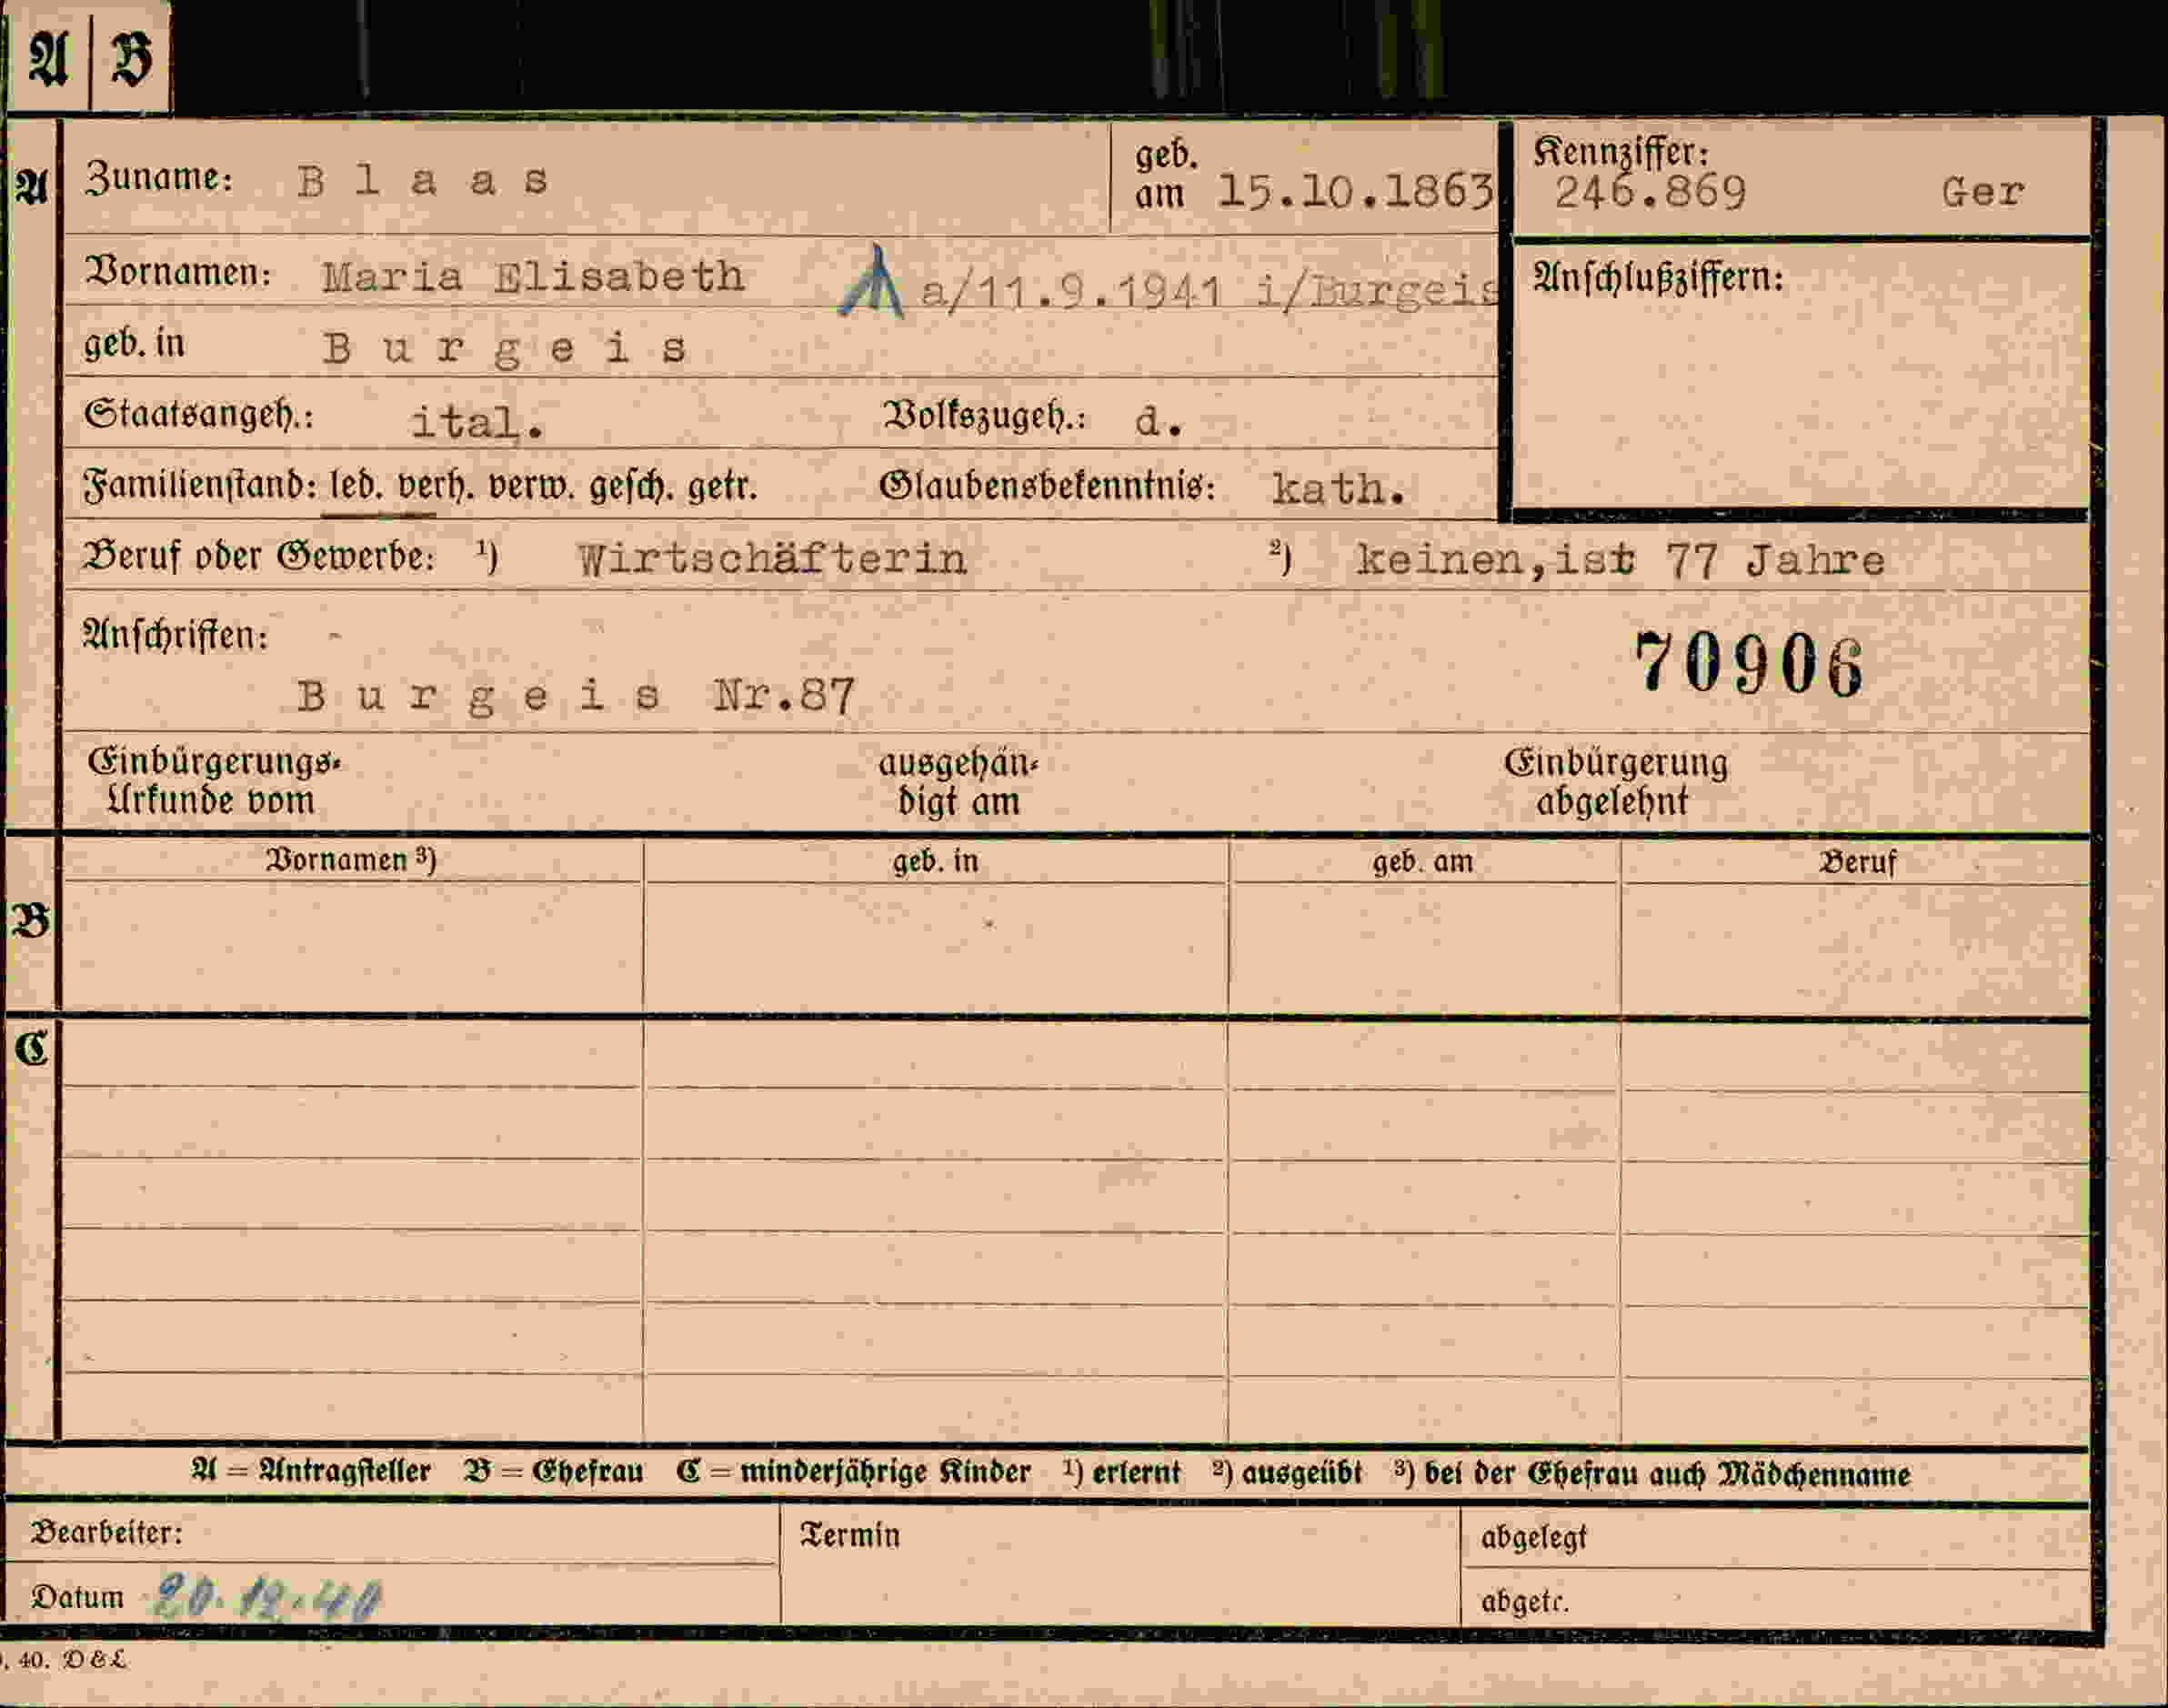 A | B
A Zuname: B l a a s geb. am 15.10.1863 Kennziffer: 246.869 Ger
Vornamen: Maria Elisabeth a/11.9.1941 i/Burgeis Anschlußziffern:
geb. in B u r g e i s
Staatsangeh.: ital. Volkszugeh.: d.
Familienstand: led. verh. verw. gesch. getr. Glaubensbekenntnis: kath.
Beruf oder Gewerbe: ¹) Wirtschäfterin ²) keinen,ist 77 Jahre
Anschriften: -
70906
B u r g e i s Nr.87
Einbürgerungs- ausgehän- Einbürgerung
Urkunde vom digt am abgelehnt
Vornamen ³) geb. in geb. am Beruf
B
C
A = Antragsteller B = Ehefrau C = minderjährige Kinder ¹) erlernt ²) ausgeübt ³) bei der Ehefrau auch Mädchenname
Bearbeiter: Termin abgelegt
Datum 20.12.40 abgetr.
. 40. D & L